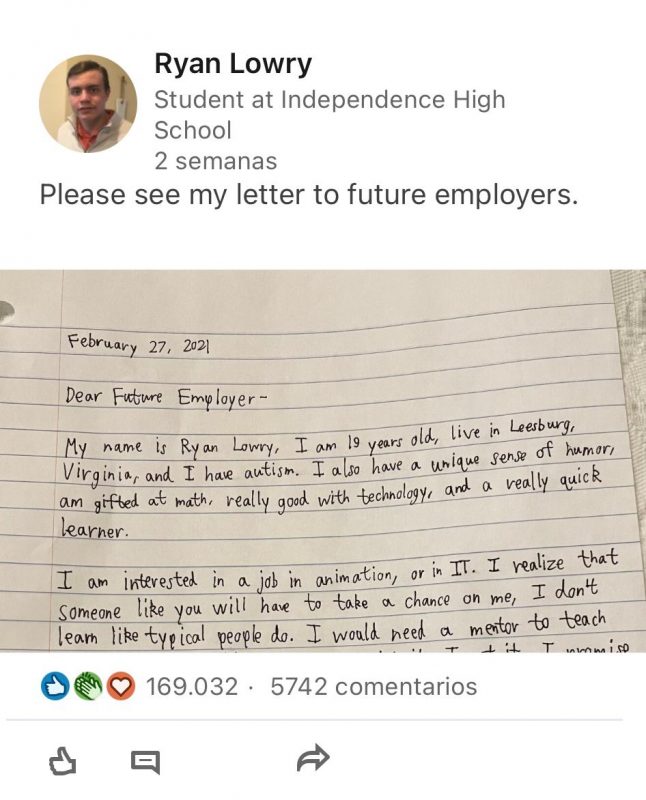 Ryan Lowry
Student at Independence High
School
2 semanas
Please see my letter to future employers.
February 27, 2021
Dear Future Employer-
My name is Ryan Lowry, I am 19 years old, live in Leesburg,
Virginia, and I have autism. I also have a unique sense of humor,
am gifted at math, really good with technology, and a really quick
learner.
I am interested in a job in animation, or in IT. I realize that
someone like you will have to take a chance on me, I don't
learn like typical people do. I would need a mentor to teach
I promise
169.032 · 5742 comentarios